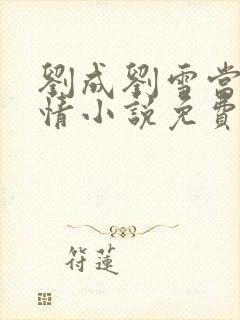 劉成劉雪當
情小說免費
符蓮